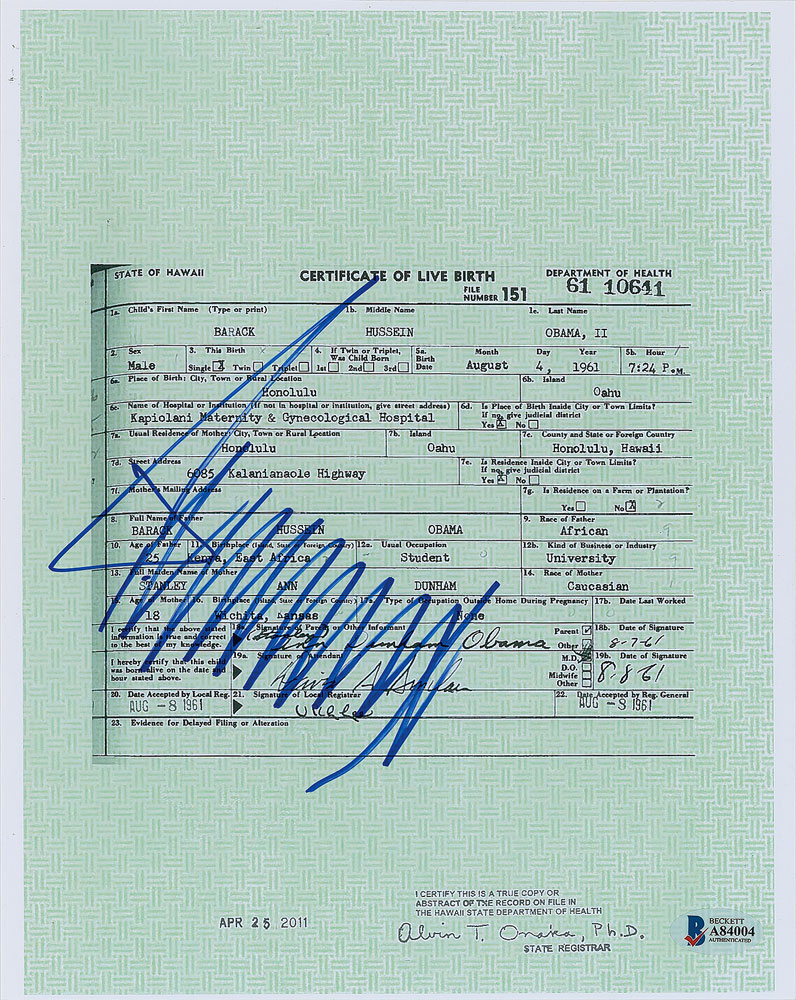 STATE OF HAWAII CERTIFICATE OF LIVE BIRTH DEPARTMENT OF HEALTH
FILE NUMBER 151 61 10641
1a. Child's First Name (Type or print) 1b. Middle Name 1c. Last Name
BARACK HUSSEIN OBAMA, II
2. Sex 3. This Birth 4. If Twin or Triplet, Was Child Born 5a. Birth Date Month Day Year 5b. Hour
Male Single X Twin Triplet 1st 2nd 3rd August 4, 1961 7:24 P.M.
6a. Place of Birth: City, Town or Rural Location 6b. Island
Honolulu Oahu
6c. Name of Hospital or Institution (If not in hospital or institution, give street address) 6d. Is Place of Birth Inside City or Town Limits? If no, give judicial district
Kapiolani Maternity & Gynecological Hospital Yes X No
7a. Usual Residence of Mother: City, Town or Rural Location 7b. Island 7c. County and State or Foreign Country
Honolulu Oahu Honolulu, Hawaii
7d. Street Address 7e. Is Residence Inside City or Town Limits? If no, give judicial district
6085 Kalanianaole Highway Yes X No
7f. Mother's Mailing Address 7g. Is Residence on a Farm or Plantation?
Yes No X
8. Full Name of Father 9. Race of Father
BARACK HUSSEIN OBAMA African
10. Age of Father 11. Birthplace (Island, State or Foreign Country) 12a. Usual Occupation 12b. Kind of Business or Industry
25 Kenya, East Africa Student University
13. Full Maiden Name of Mother 14. Race of Mother
STANLEY ANN DUNHAM Caucasian
15. Age of Mother 16. Birthplace (Island, State or Foreign Country) 17a. Type of Occupation Outside Home During Pregnancy 17b. Date Last Worked
18 Wichita, Kansas None
I certify that the above stated information is true and correct to the best of my knowledge. 18a. Signature of Parent or Other Informant Parent Other 18b. Date of Signature
(Stanley) Ann Dunham Obama 8-7-61
I hereby certify that this child was born alive on the date and hour stated above. 19a. Signature of Attendant M.D. D.O. Midwife Other 19b. Date of Signature
8-8-61
20. Date Accepted by Local Reg. 21. Signature of Local Registrar 22. Date Accepted by Reg. General
AUG -8 1961 AUG -8 1961
23. Evidence for Delayed Filing or Alteration
APR 25 2011
I CERTIFY THIS IS A TRUE COPY OR
ABSTRACT OF TXE RECORD ON FILE IN
THE HAWAII STATE DEPARTMENT OF HEALTH
Alvin T. Onaka, Ph.D.
STATE REGISTRAR
BECKETT
A84004
AUTHENTICATED